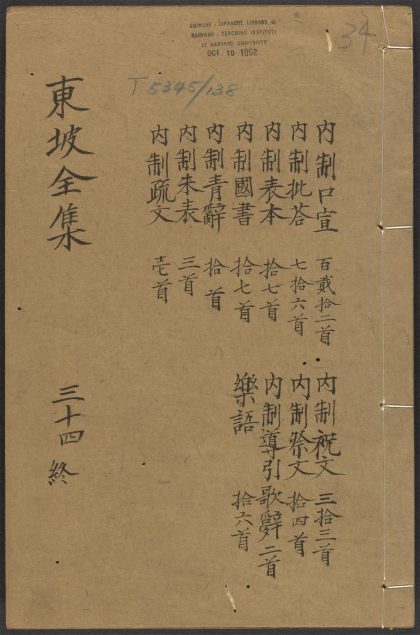 CHINESE - JAPANESE LIBRARY OF
HARVARD - YENCHING INSTITUTE
AT HARVARD UNIVERSITY
OCT 10 1952
34
T 5345/138
內制口宣 百貳拾二首
內制批荅 七拾六首
內制表本 拾七首
內制國書 拾七首
內制青辭 拾首
內制朱表 三首
內制疏文 壱首
內制祝文 三拾三首
內制祭文 拾四首
內制導引歌辭二首
樂語 拾六首
東坡全集 三十四終